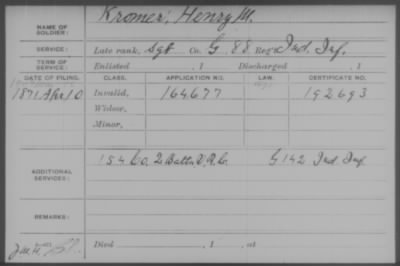 NAME OF SOLDIER: Kromer, Henry M.
SERVICE: Late rank, Sgt Co. G, 88 Reg't Ind. Inf.
TERM OF SERVICE: Enlisted , 1 Discharged , 1
DATE OF FILING. CLASS. APPLICATION NO. LAW. CERTIFICATE NO.
1871 Apr 10 Invalid, 164677 192693
Widow,
Minor,
ADDITIONAL SERVICES: 154 Co. 2 Batt. V.R.C. G 142 Ind. Inf.
REMARKS:
Died , 1 , at